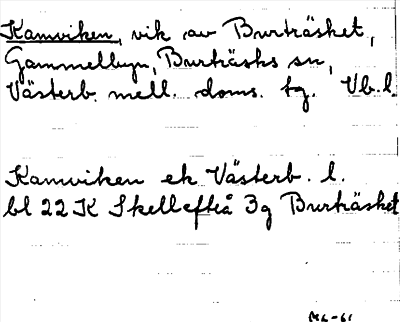 Kamviken, vik av Burträsket,
Gammelbyn, Burträsks sn,
Västerb. mell. doms. tg. Vb.l.
Kamviken ek Västerb. l.
bl 22 K Skellefteå 3g Burträsket